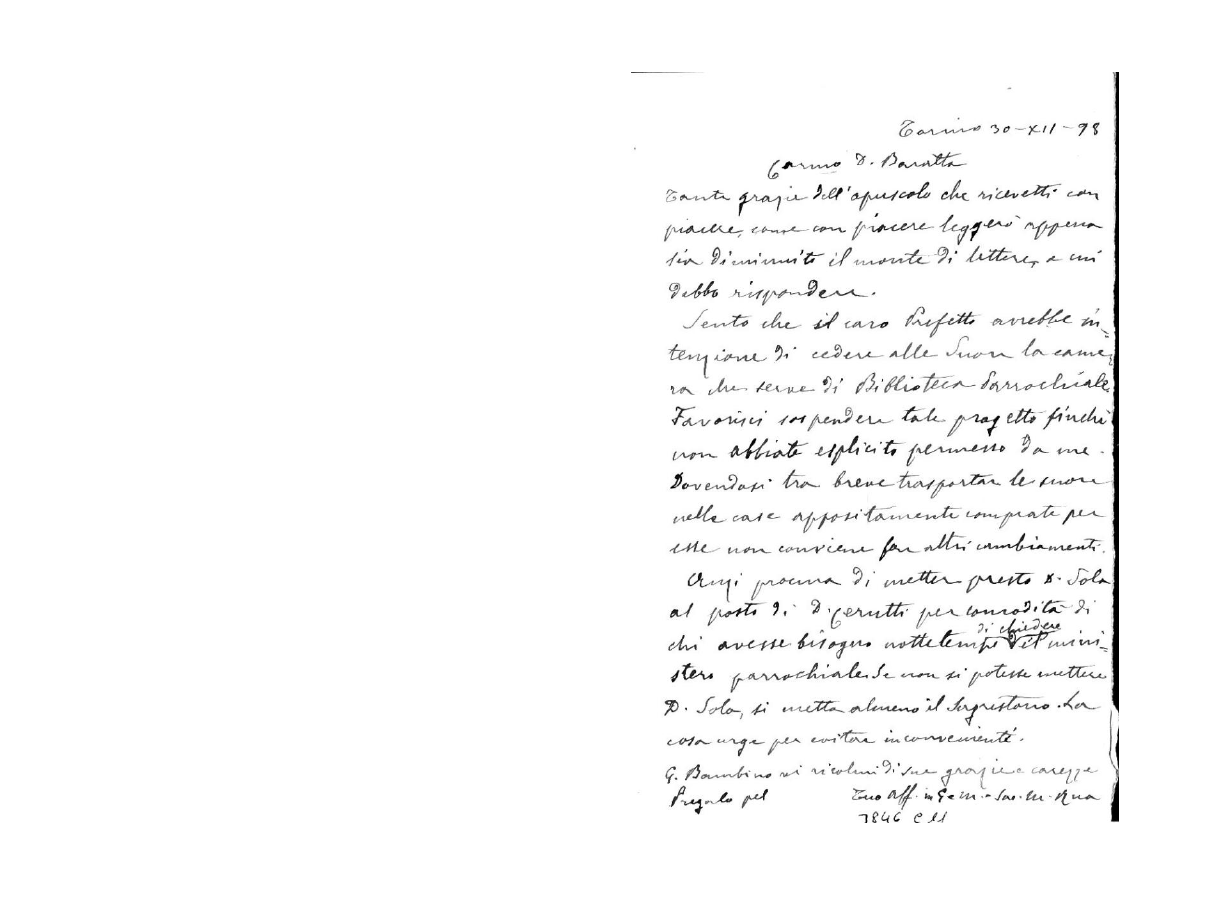 Torino 30-XII-98
Carmo D. Baratta
Tante grazie dell'apuscolo che ricevetti con
piacere, come con piacere leggerò appena
sia diminuito il monte di lettere, a cui
debbo rispondere.
Sento che il caro Prefetto avrebbe in=
tenzione di cedere alle Suore la came,
ra che serve di Biblioteca Parrochiale.
Favorisci sospendere tale progetto finchè
non abbiate esplicito permesso da me.
Dovendosi tra breve trasportar le suore
nelle case appositamente comprate per
esse non conviene far altri cambiamenti.
Anzi procura di metter presto D. Sola
al posto di D. Cerutti per comodità di
chi avesse bisogno nottetempo di chiedere il mini=
stero parrochiale. Se non si potesse mettere
D. Sola, si metta almeno il Sagrestano. La
cosa urge per evitar inconvenienti.
G. Bambino vi ricolmi di sue grazie e carezze
Pregalo pel Tuo Aff. in G e M. Sac. M. Rua